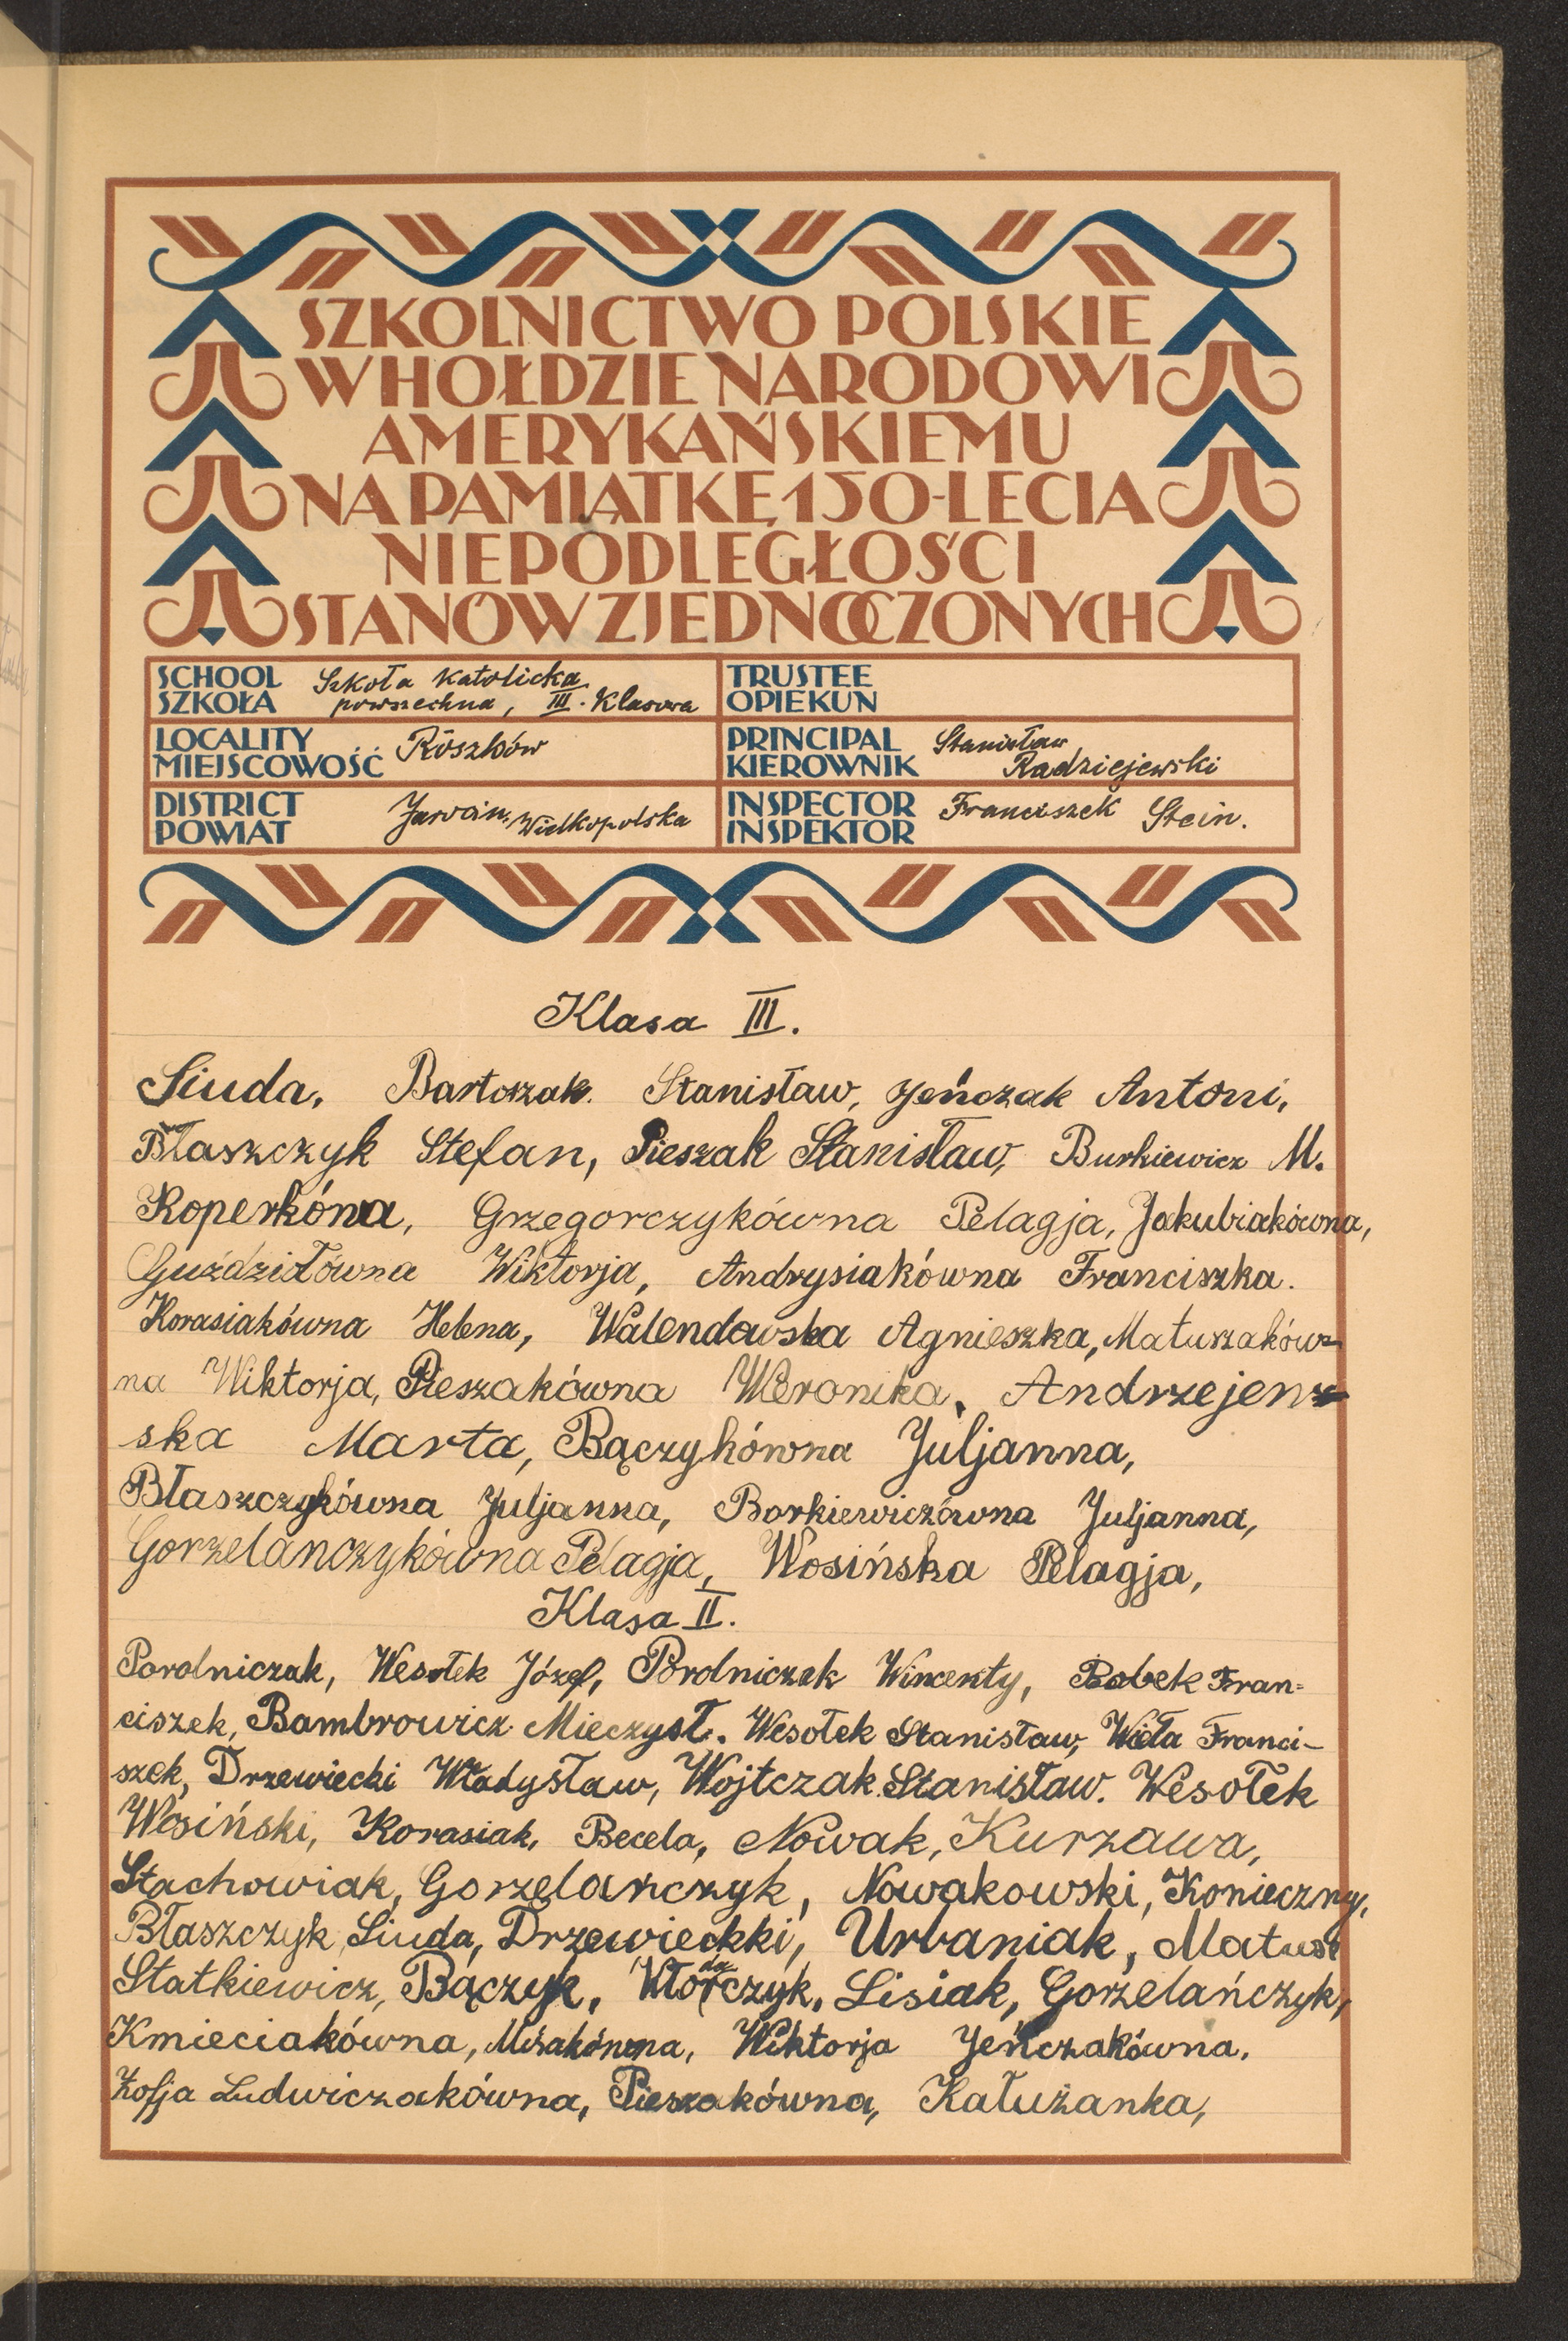 SZKOLNICTWO POLSKIE
W HOŁDZIE NARODOWI
AMERYKAŃSKIEMU
NA PAMIĄTKĘ 150-LECIA
NIEPODLEGŁOŚCI
STANÓW ZJEDNOCZONYCH
SCHOOL
SZKOŁA
Szkoła Katolicka
powszechna, III. Klasowa
TRUSTEE
OPIEKUN
LOCALITY
MIEJSCOWOŚĆ
Roszków
PRINCIPAL
KIEROWNIK
Stanisław
Radziejewski
DISTRICT
POWIAT
Jarocin, Wielkopolska
INSPECTOR
INSPEKTOR
Franciszek Stein.
Klasa III.
Siuda, Bartoszak. Stanisław, Jeńczak Antoni,
Błaszczyk Stefan, Pieszak Stanisław, Burkiewicz M.
Koperkówna, Grzegorczykówna Pelagja, Jakubiakówna,
Guździołówna Wiktorja, Andrysiakówna Franciszka.
Korasiakówna Helena, Walendowska Agnieszka, Matuszaków-
na Wiktorja, Pieszakówna Weronika, Andrzejew-
ska Marta, Bączykówna Juljanna,
Błaszczykówna Juljanna, Borkiewiczówna Juljanna,
Gorzelańczykówna Pelagja, Wosińska Pelagja,
Klasa II.
Porolniczak, Wesołek Józef, Porolniczak Wincenty, Bobek Fran-
ciszek, Bambrowicz Mieczysł. Wesołek Stanisław, Wiela Franci-
szek, Drzewiecki Władysław, Wojtczak Stanisław. Wesołek
Wosiński, Korasiak, Becela, Nowak, Kurzawa,
Stachowiak, Gorzelańczyk, Nowakowski, Konieczny,
Błaszczyk, Siuda, Drzewieckki, Urbaniak, Matusz
Statkiewicz, Bączyk, Lisiak, Gorzelańczyk,
Kmieciakówna, Wiktorja Jeńczakówna,
Zofja Ludwiczakówna, Pieszakówna, Kałużanka,